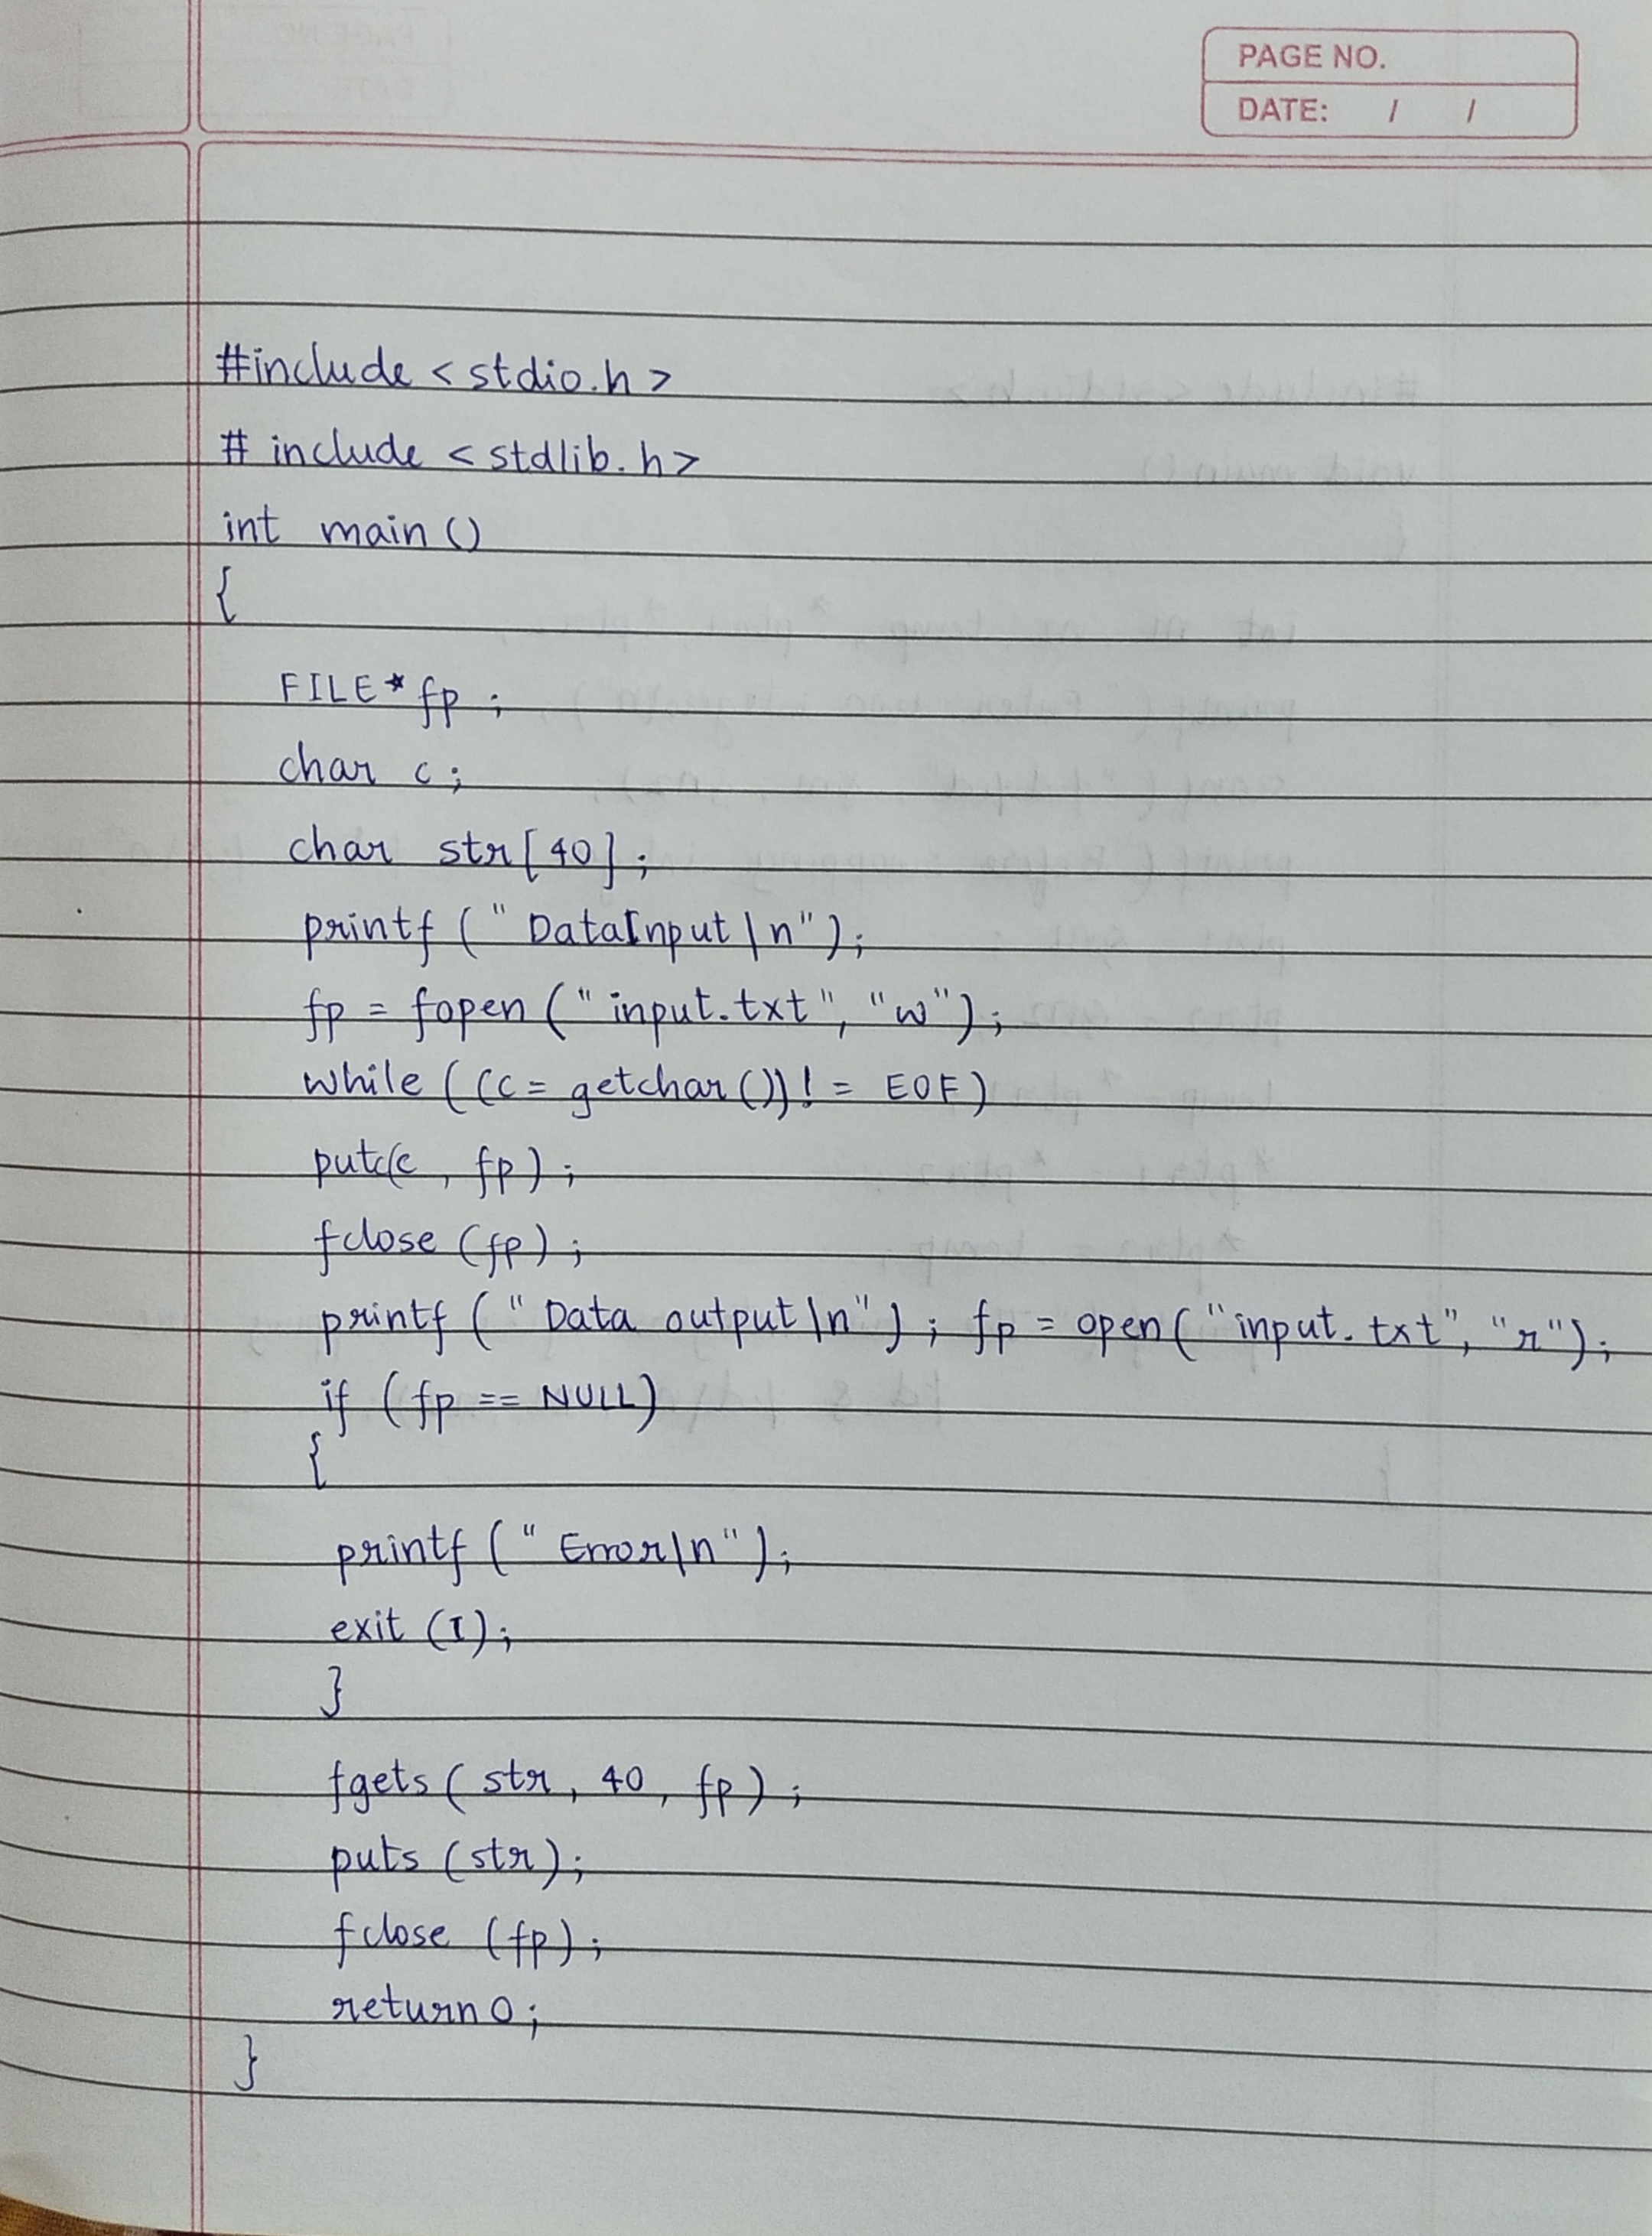 PAGE NO.
DATE: / /
#include <stdio.h>
# include <stdlib.h>
int main ()
{
FILE* fp ;
char c ;
char str [40] ;
printf (" DataInput \n") ;
fp = fopen (" input.txt ", "w") ;
while ((c = getchar ()) != EOF)
putc(c , fp) ;
fclose (fp) ;
printf (" Data output \n") ; fp = open ("input. txt", "r") ;
if (fp == NULL)
{
printf (" Error\n") ;
exit (1) ;
}
fgets ( str , 40 , fp) ;
puts (str) ;
fclose (fp) ;
return 0 ;
}